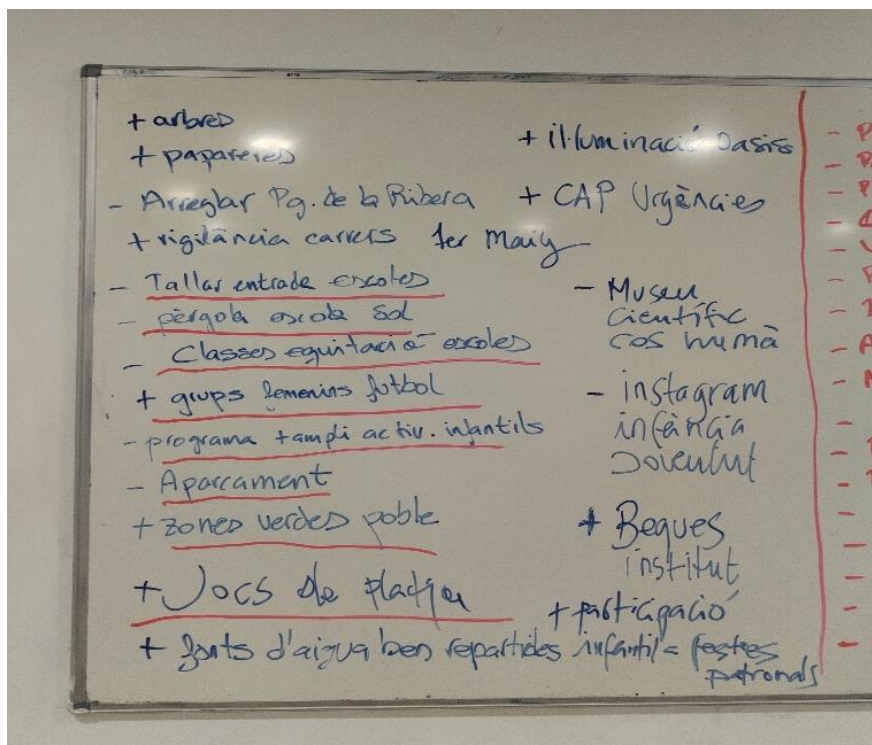 + arbres
+ papereres
- Arreglar Pg. de la Ribera
+ vigilància carrers 1er Maig
- Tallar entrada escoles
- pèrgola escola Sol
- Classes equitació escoles
+ grups femenins futbol
- programa + ampli activ. infantils
- Aparcament
+ zones verdes poble
+ Jocs de platja
+ fonts d'aigua ben repartides
+ il·luminació Oasis
+ CAP Urgències
- Museu
científic
cos humà
- instagram
infància
Joventut
+ Beques
institut
+ participació
infantil = festes
patronals
- P
- P
- P
- A
- P
- A